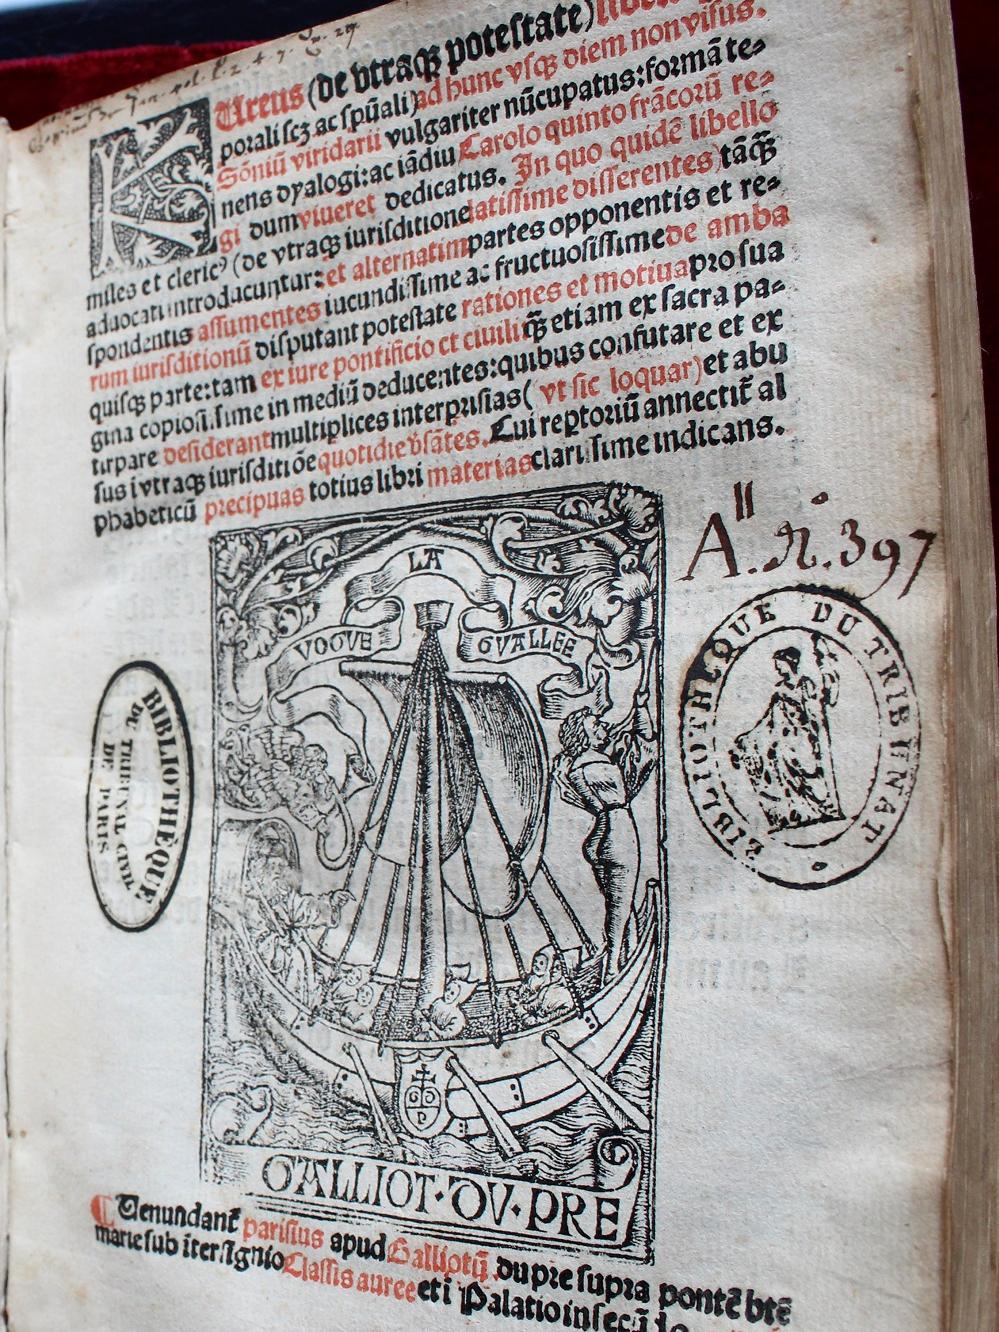 Aureus (de vtraqꝫ potestate) libell
porali scꝫ ac spũali) ad hunc vsqꝫ diem non visus.
Sõniũ viridarii vulgariter nũcupatus: formã te⸗
nens dyalogi: ac iãdiu Carolo quinto frãcorũ re⸗
gi dum viueret dedicatus. In quo quidẽ libello
miles et cleric⁹ (de vtraqꝫ iurisditione latissime disserentes) tãqꝫ̃
aduocati introducuntur: et alternatim partes opponentis et re⸗
spondentis assumentes iucundissime ac fructuosissime de amba
rum iurisditionũ disputant potestate rationes et motiua pro sua
quisqꝫ parte: tam ex iure pontificio et ciuili qꝫ̃ etiam ex sacra pa⸗
gina copiosissime in mediũ deducentes: quibus confutare et ex
tirpare desiderant multiplices interprisias (vt sic loquar) et abu
sus i vtraqꝫ iurisditiõe quotidie v̾sãtes. Cui rep̱toriũ annectit̃ al
phabeticũ precipuas totius libri materias clarissime indicans.
LA
VOGVE GVALLEE
A. N. 397
BIBLIOTHEQUE DU TRIBUNAT
BIBLIOTHÈQUE
DU TRIBUNAL CIVIL
DE PARIS
P
GALLIOT·DV·PRE
Uenundant̃ parisius apud Galliotũ du pre supra pontẽ btẽ
marie sub ĩtersignio Classis auree et i Palatio in secũ